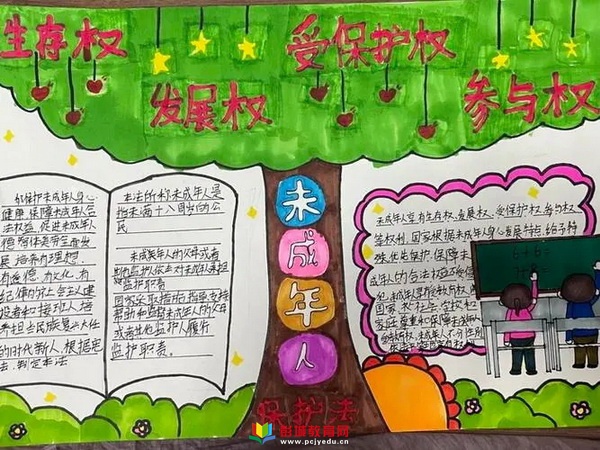 生存权
受保护权
发展权
参与权
未
成
年
人
保护法
为保护未成年人身心
健康,保障未成年人合
法权益,促进未成年人
德智体美劳全面发
展,培养有理想、
有道德、有文化、有
纪律的社会主义建
设者和接班人,培
养担当民族复兴大任
的时代新人,根据宪
法,制定本法
本法所称未成年人是
指未满十八周岁的公
民
未成年人的父母或者
其他监护人依法对未成年人承担
监护职责
国家采取措施指导、支持、
帮助和监督未成年人的父母
或者其他监护人履行
监护职责。
未成年人享有生存权、发展权、受保护权、参与权
等权利,国家根据未成年人身心发展特点给予特
殊、优先保护,保障未
成年人的合法权益不受侵
国家、社会、学校和家
6+6=
彭城教育网
www.pcjyedu.cn